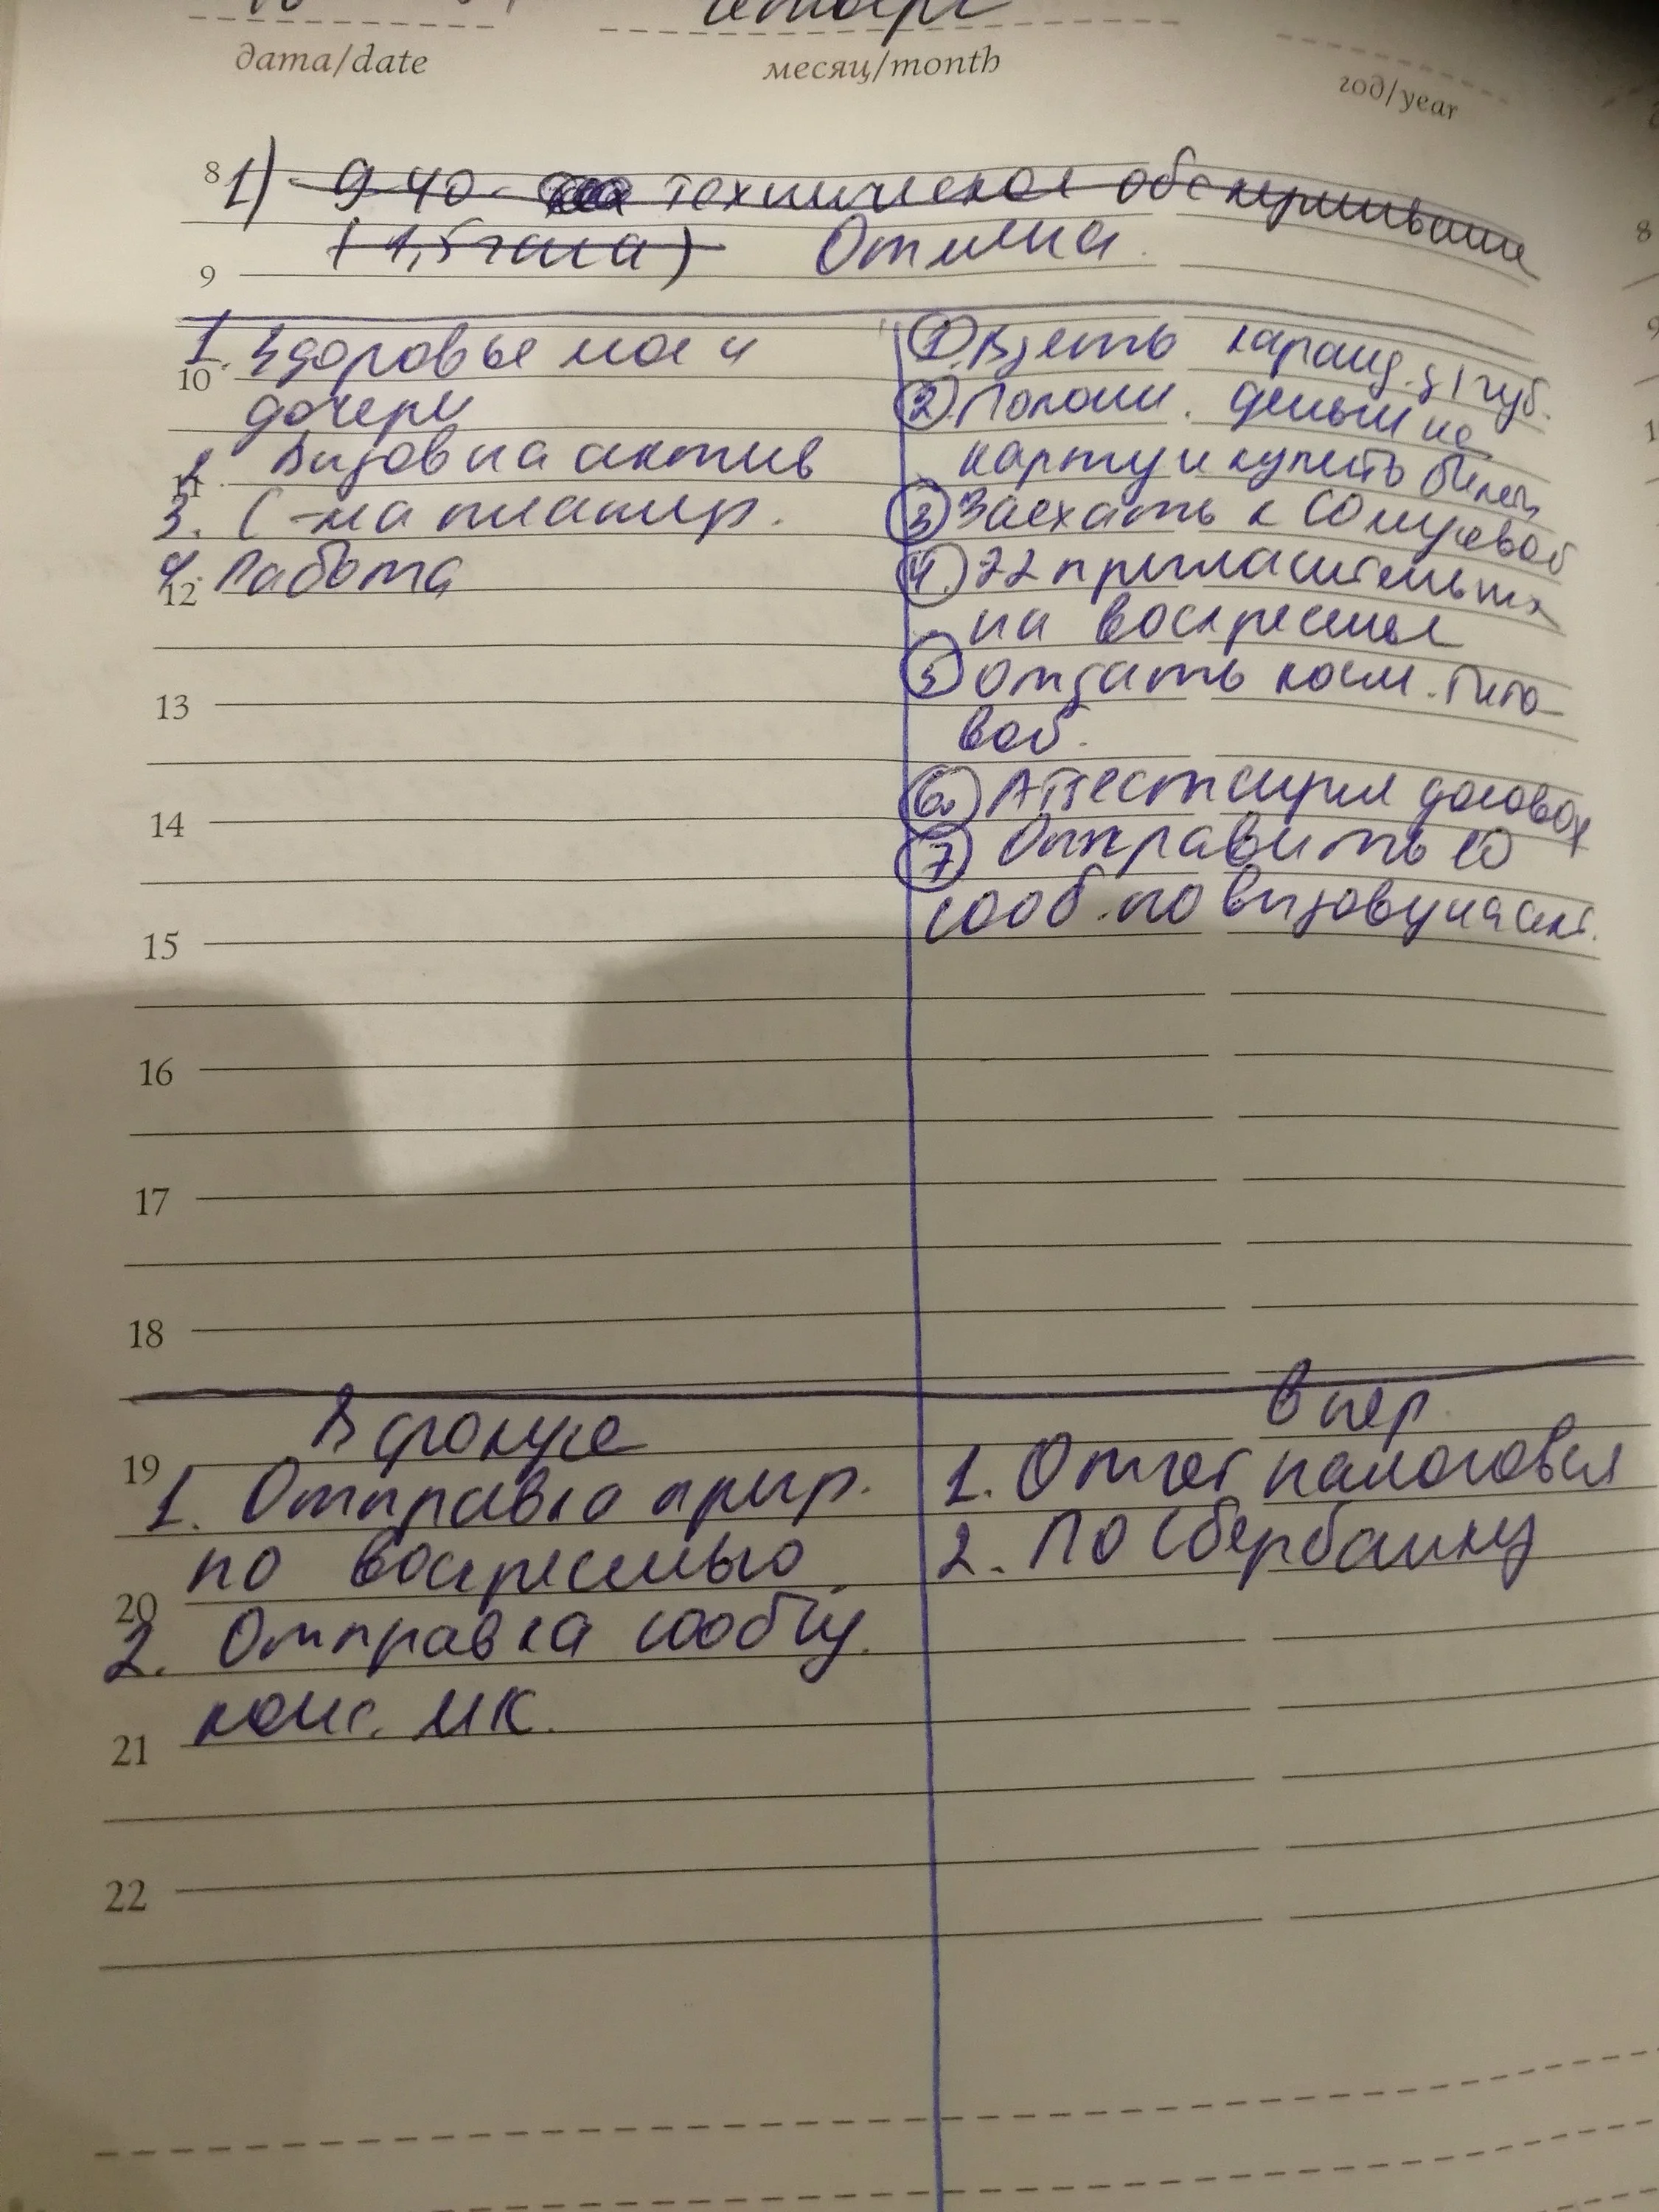 четверг
дата/date месяц/month год/year
8 1) 9-40 - техническое обслуживание
(1,5 часа) Отмена.
9
1. Здоровье мое и
10
дочери
2. Вызов на актив
11
3. С-ма планир.
4. Работа
12
1. Взять каранд. д/губ.
2. Полож. деньги на
карту и купить билет
3 Заехать к
4. 22 пригласительных
на воскресенье
5 отдать косм. Тито
вой.
6. договор
7 Отправить 10
сооб. по вызову на акт.
13
14
15
16
17
18
В фокусе
19
1. Отправка приг.
по воскресенью
20
2. Отправка сообщ.
конс. МК.
21
22
В пер
1. Отчет налоговая
2. По Сбербанку